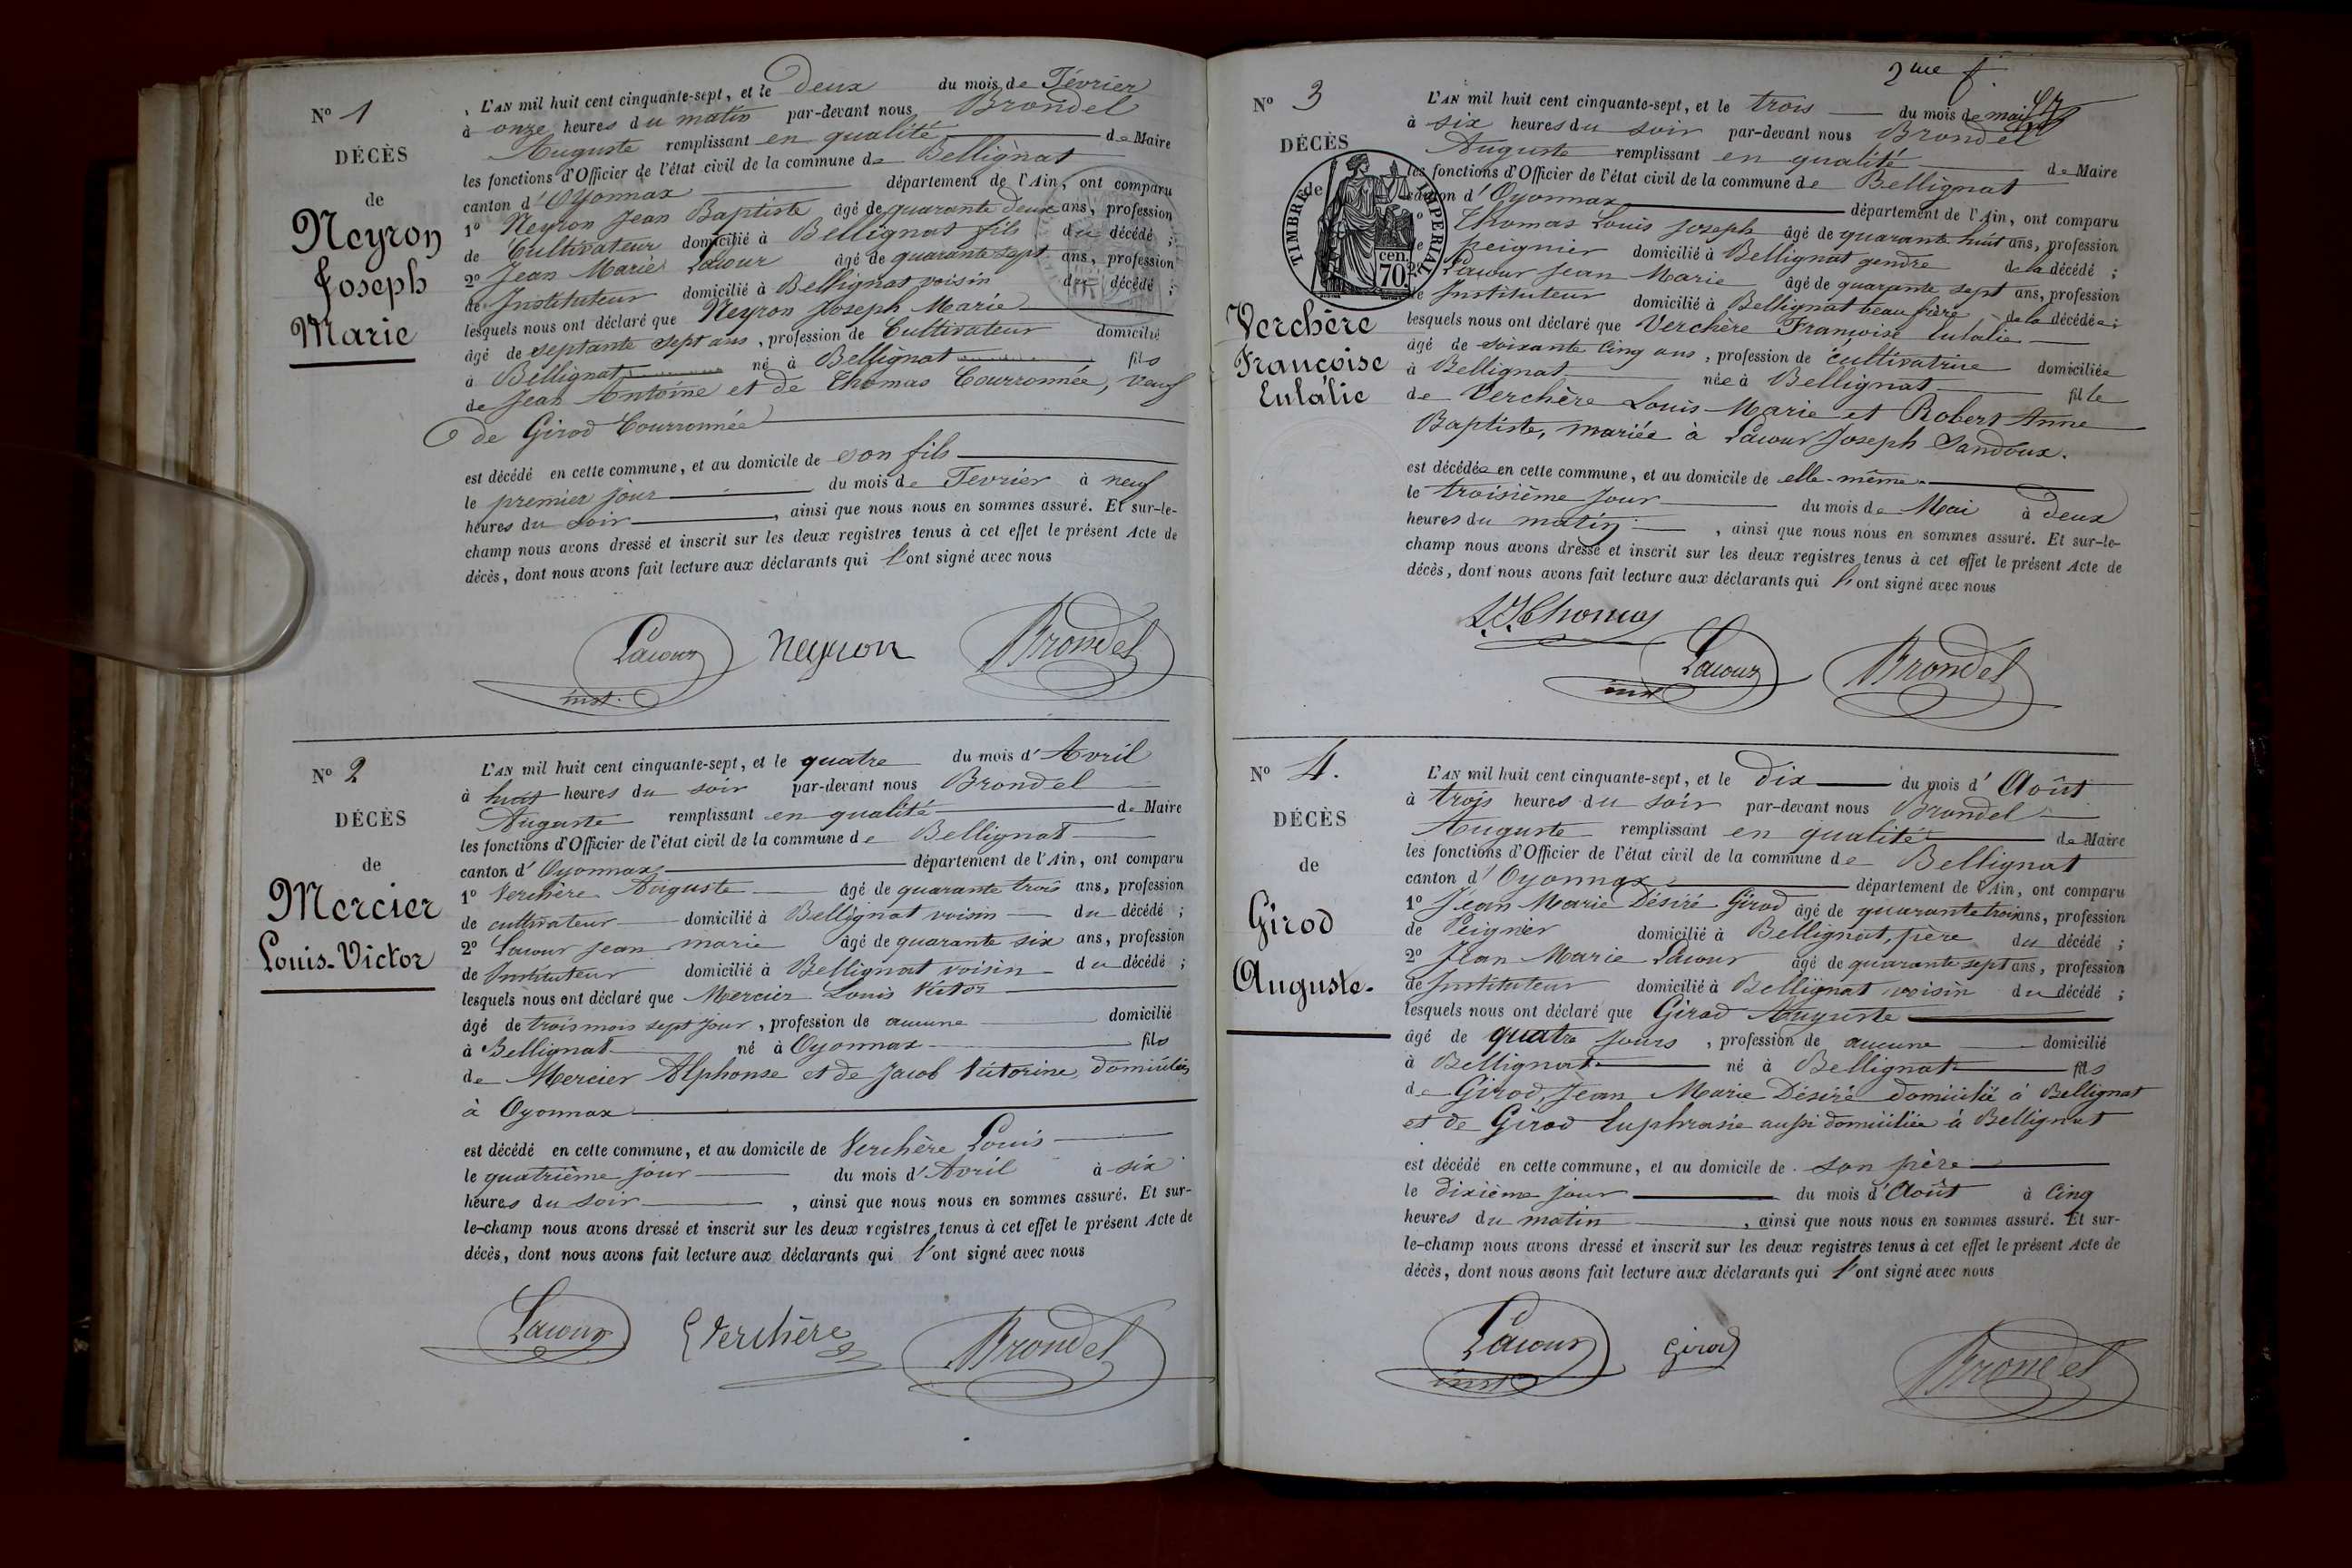 N° 1
DÉCÈS
de
Neyron
Joseph
Marie
L'AN mil huit cent cinquante-sept, et le Deux du mois de Février
à onze heures du matin par-devant nous Brondel
Auguste remplissant en qualité de Maire
les fonctions d'Officier de l'état civil de la commune de Bellignat
canton d'Oyonnax département de l'Ain, ont comparu
1° Neyron Jean Baptiste âgé de quarante deux ans, profession
de Cultivateur domicilié à Bellignat fils du décédé ;
2° Jean Marie Lacour âgé de quarante sept ans, profession
de Instituteur domicilié à Bellignat voisin du décédé ;
lesquels nous ont déclaré que Neyron Joseph Marie
âgé de septante sept ans, profession de Cultivateur domicilié
à Bellignat né à Bellignat fils
de Jean Antoine et de Thomas Courronnée, veuf
de Girod Courronnée
est décédé en cette commune, et au domicile de son fils
le premier jour du mois de Fevrier à neuf
heures du soir, ainsi que nous nous en sommes assuré. Et sur-le-
champ nous avons dressé et inscrit sur les deux registres tenus à cet effet le présent Acte de
décès, dont nous avons fait lecture aux déclarants qui l'ont signé avec nous
Lacour Neyron Brondel
inst.
N° 2
DÉCÈS
de
Mercier
Louis-Victor
L'AN mil huit cent cinquante-sept, et le quatre du mois d'Avril
à huit heures du soir par-devant nous Brondel
Auguste remplissant en qualité de Maire
les fonctions d'Officier de l'état civil de la commune de Bellignat
canton d'Oyonnax département de l'Ain, ont comparu
1° Verchère Auguste âgé de quarante trois ans, profession
de cultivateur domicilié à Bellignat voisin du décédé ;
2° Lacour Jean marie âgé de quarante six ans, profession
de Instituteur domicilié à Bellignat voisin du décédé ;
lesquels nous ont déclaré que Mercier Louis Victor
âgé de trois mois sept jour, profession de aucune domicilié
à Bellignat né à Oyonnax fils
de Mercier Alphonse et de Jacob Victorine, domiciliés
à Oyonnax
est décédé en cette commune, et au domicile de Verchère Louis
le quatrième jour du mois d'Avril à six
heures du soir, ainsi que nous nous en sommes assuré. Et sur-
le-champ nous avons dressé et inscrit sur les deux registres tenus à cet effet le présent Acte de
décès, dont nous avons fait lecture aux déclarants qui l'ont signé avec nous
Lacour Verchère Brondel
2me f
N° 3
DÉCÈS
de
TIMBRE IMPÉRIAL
70 cen.
Verchère
Françoise
Eulalie
L'AN mil huit cent cinquante-sept, et le trois du mois de mai
à six heures du soir par-devant nous Brondel
Auguste remplissant en qualité de Maire
les fonctions d'Officier de l'état civil de la commune de Bellignat
canton d'Oyonnax département de l'Ain, ont comparu
1° Thomas Louis Joseph âgé de quarante huit ans, profession
de peignier domicilié à Bellignat gendre de la décédé ;
2° Lacour Jean Marie âgé de quarante sept ans, profession
de Instituteur domicilié à Bellignat beau frère de la décédée ;
lesquels nous ont déclaré que Verchère Françoise Eulalie
âgé de soixante cinq ans, profession de cultivatrice domiciliée
à Bellignat née à Bellignat fille
de Verchère Louis-Marie et Robert Anne
Baptiste, mariée à Lacour Joseph Sandoux.
est décédée en cette commune, et au domicile de elle-même
le troisième jour du mois de Mai à deux
heures du matin, ainsi que nous nous en sommes assuré. Et sur-le-
champ nous avons dressé et inscrit sur les deux registres tenus à cet effet le présent Acte de
décès, dont nous avons fait lecture aux déclarants qui l'ont signé avec nous
L.J. Thomas
Lacour Brondel
inst
N° 4.
DÉCÈS
de
Girod
Auguste.
L'AN mil huit cent cinquante-sept, et le dix du mois d'Août
à trois heures du soir par-devant nous Brondel
Auguste remplissant en qualité de Maire
les fonctions d'Officier de l'état civil de la commune de Bellignat
canton d'Oyonnax département de l'Ain, ont comparu
1° Jean Marie Désiré Girod âgé de quarante trois ans, profession
de Peignier domicilié à Bellignat, père du décédé ;
2° Jean Marie Lacour âgé de quarante sept ans, profession
de Instituteur domicilié à Bellignat voisin du décédé ;
lesquels nous ont déclaré que Girod Auguste
âgé de quatre jours, profession de aucune domicilié
à Bellignat né à Bellignat fils
de Girod, Jean Marie Désiré domicilié à Bellignat
et de Girod Euphrasie aussi domiciliée à Bellignat
est décédé en cette commune, et au domicile de son père
le dixième jour du mois d'Août à cinq
heures du matin, ainsi que nous nous en sommes assuré. Et sur-
le-champ nous avons dressé et inscrit sur les deux registres tenus à cet effet le présent Acte de
décès, dont nous avons fait lecture aux déclarants qui l'ont signé avec nous
Lacour Girod Brondel
inst